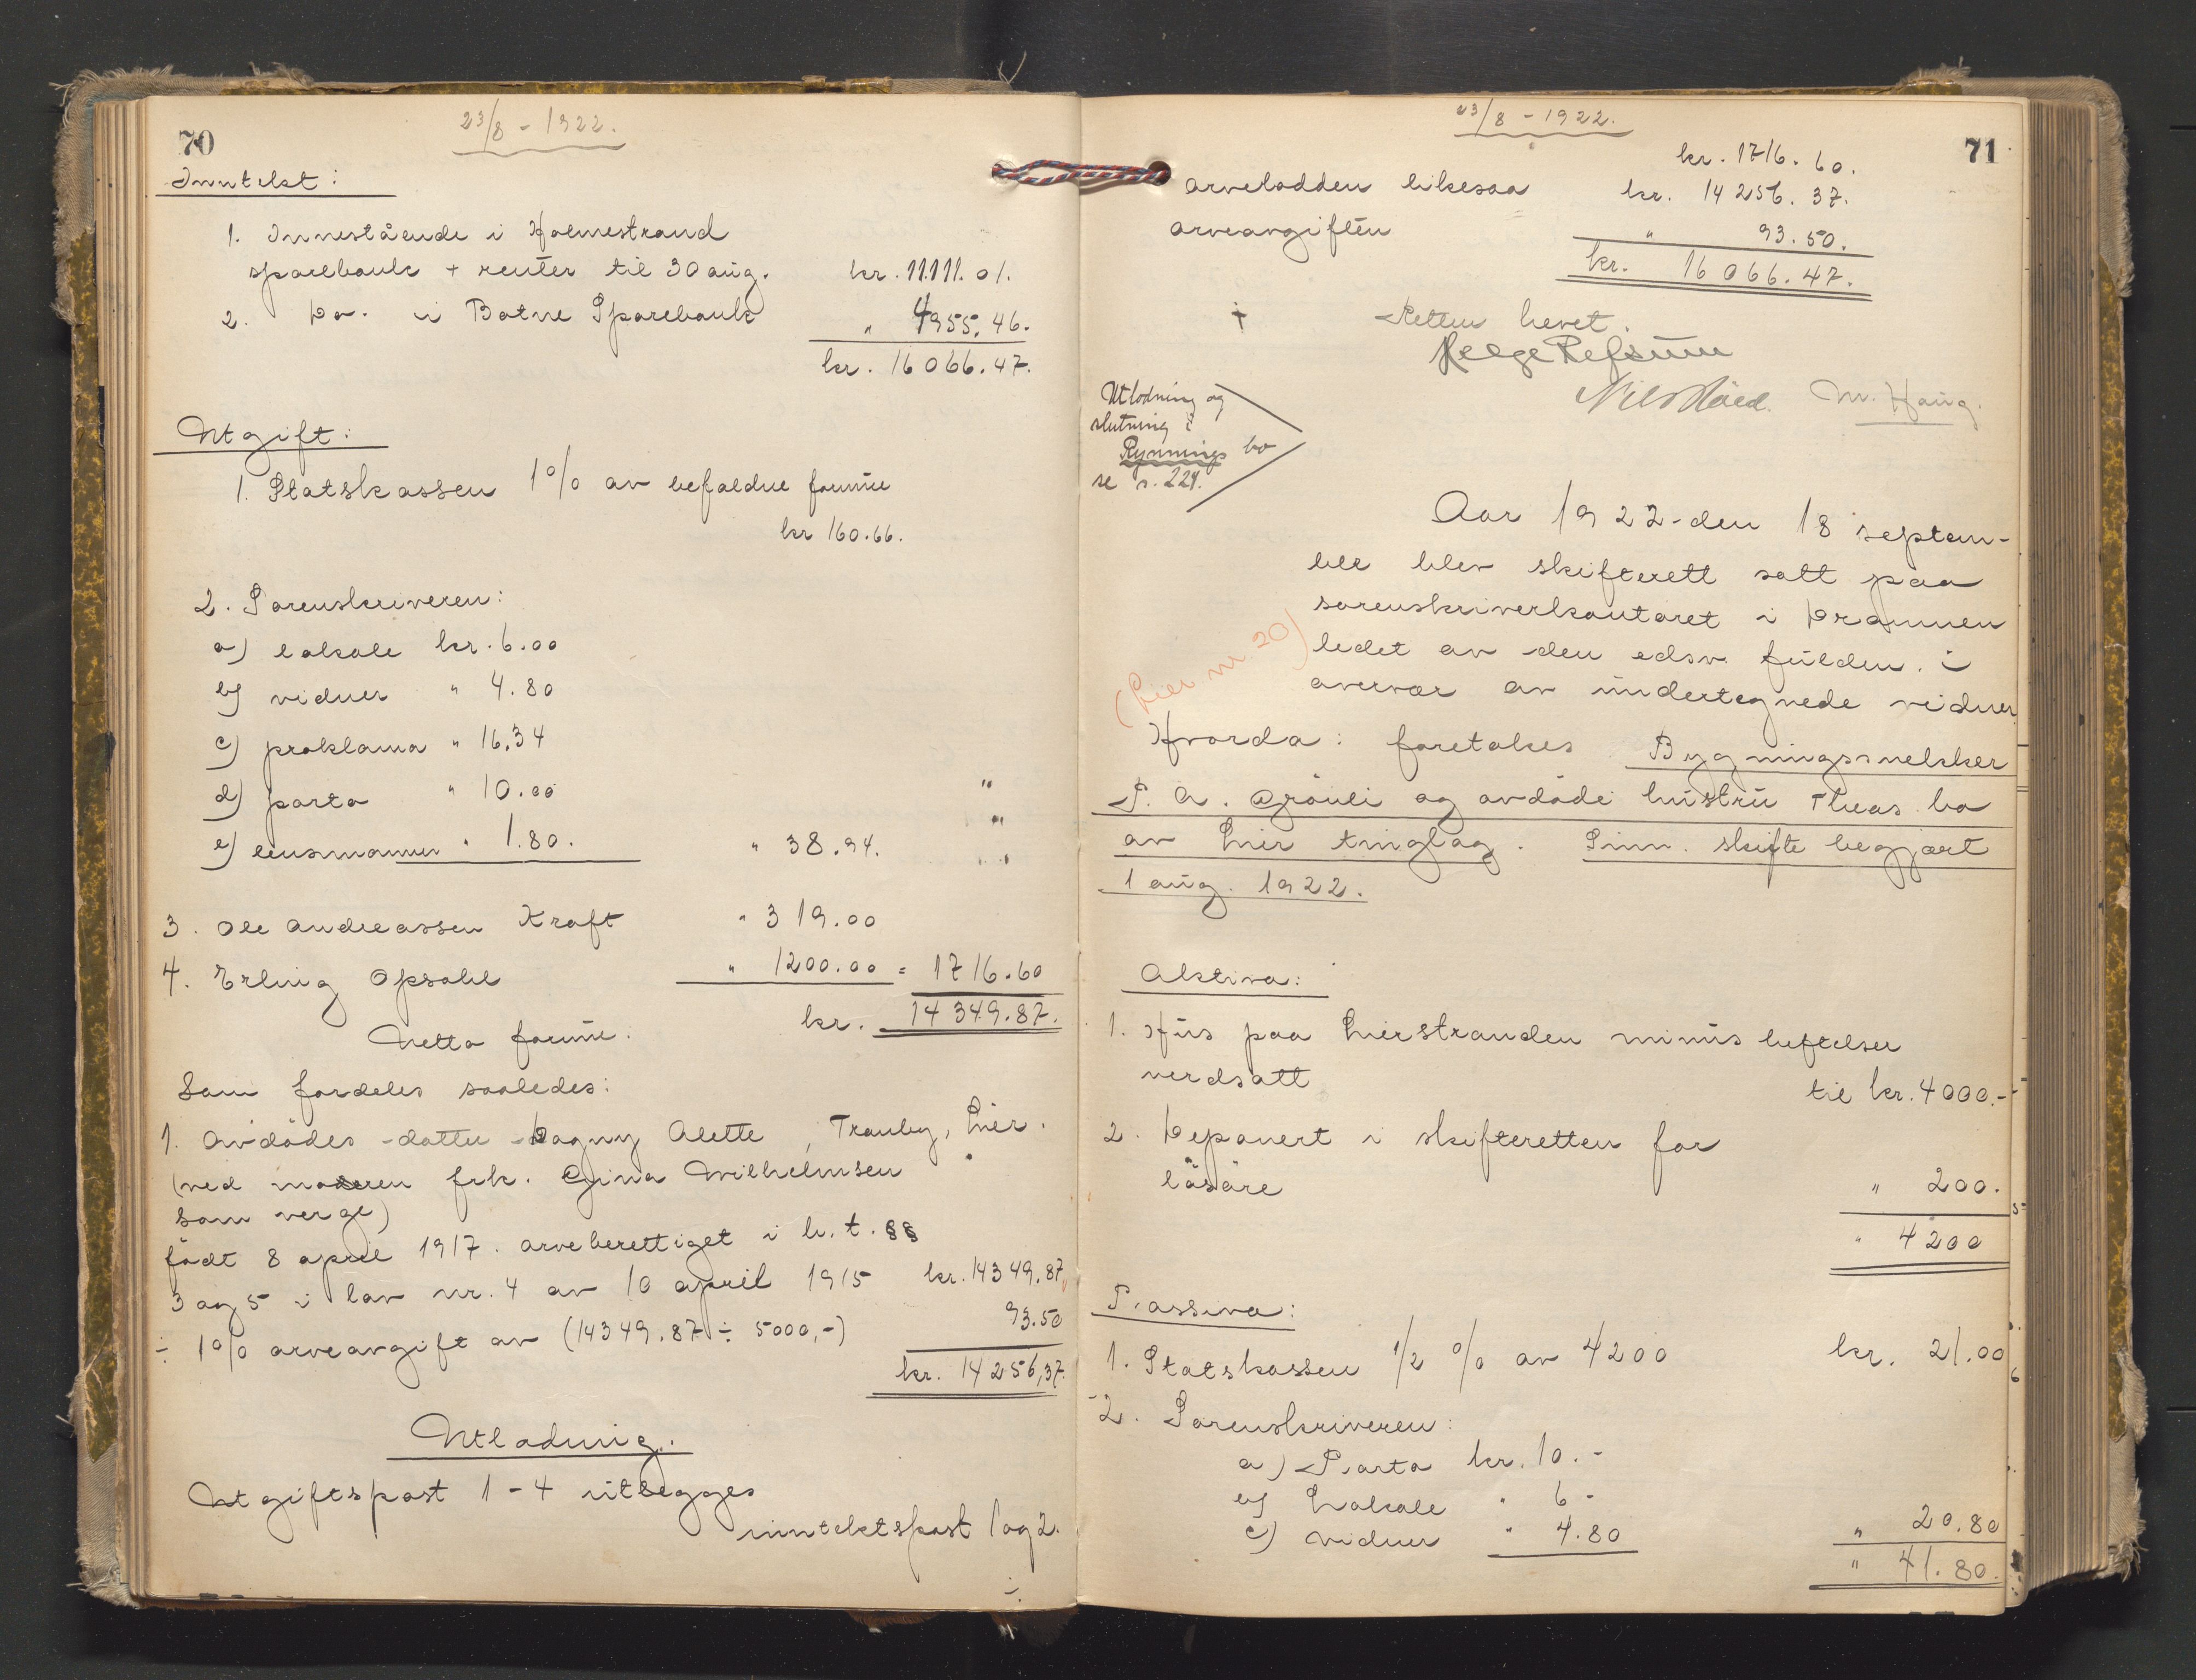 70
23/8 - 1922.
Inntekt:
1. Innestående i Holmestrand
sparebank + renter til 30 aug. kr. 11.111.01.
2. Do. i Botne Sparebank " 4955.46.
kr. 16066.47.
Utgift:
1. Statskassen 1% av befaldne formue
kr 160.66.
2. Sorenskriveren:
a) lokale kr. 6.00
b) vidner " 4.80
c) proklama " 16.34
d) porto " 10.00
e) lensmannen " 1.80. " 38.94.
3. Ole Andreassen Kraft " 319.00
4. Erling Opsahl " 1200.00 = 1716.60
Netto formue. kr. 14349.87.
Som fordeles saaledes:
1. Avdødes datter Dagny Alette, Tranby, Lier.
(ved moderen frk. Gina Wilhelmsen
som verge)
født 8 april 1917. arveberettiget i h. t. §§
3 og 5 i lov nr. 4 av 10 april 1915 kr. 14349.87
÷ 1% arveavgift av (14349.87 ÷ 5000,-) 93.50
kr. 14256,37.
Utlodning.
Utgiftspost 1 - 4 utlegges
inntektspost 1 og 2.
÷
23/8 - 1922.
71
kr. 1716.60.
arvelodden likesaa kr. 14256.37.
arveavgiften " 93.50.
kr. 16066.47.
Retten hevet.
Helge Refsum
M. Haug.
Utlodning og
slutning i
Rynnings bo
se s. 224.
Aar 1922 den 18 septem-
ber blev skifterett satt paa
sorenskriverkontoret i Drammen
ledet av den edsv. fuldm. i
overvær av undertegnede vidner
(Lier nr. 20)
Hvorda: foretokes Bygningssnekker
P. A. Grøuli og avdøde hustru Theas bo
av Lier tinglag. Sinn. skifte begjært
1 aug. 1922.
Aktiva:
1. Hus paa Lierstranden minus heftelser
verdsatt til kr. 4000.-
2. Deponert i skifteretten for
løsøre " 200.
" 4200
Passiva:
1. Statskassen 1/2 % av 4200 kr. 21.00
2. Sorenskriveren:
a) Porto kr. 10.-
b) Lokale " 6 -
c) vidner " 4.80 " 20.80
" 41.80.